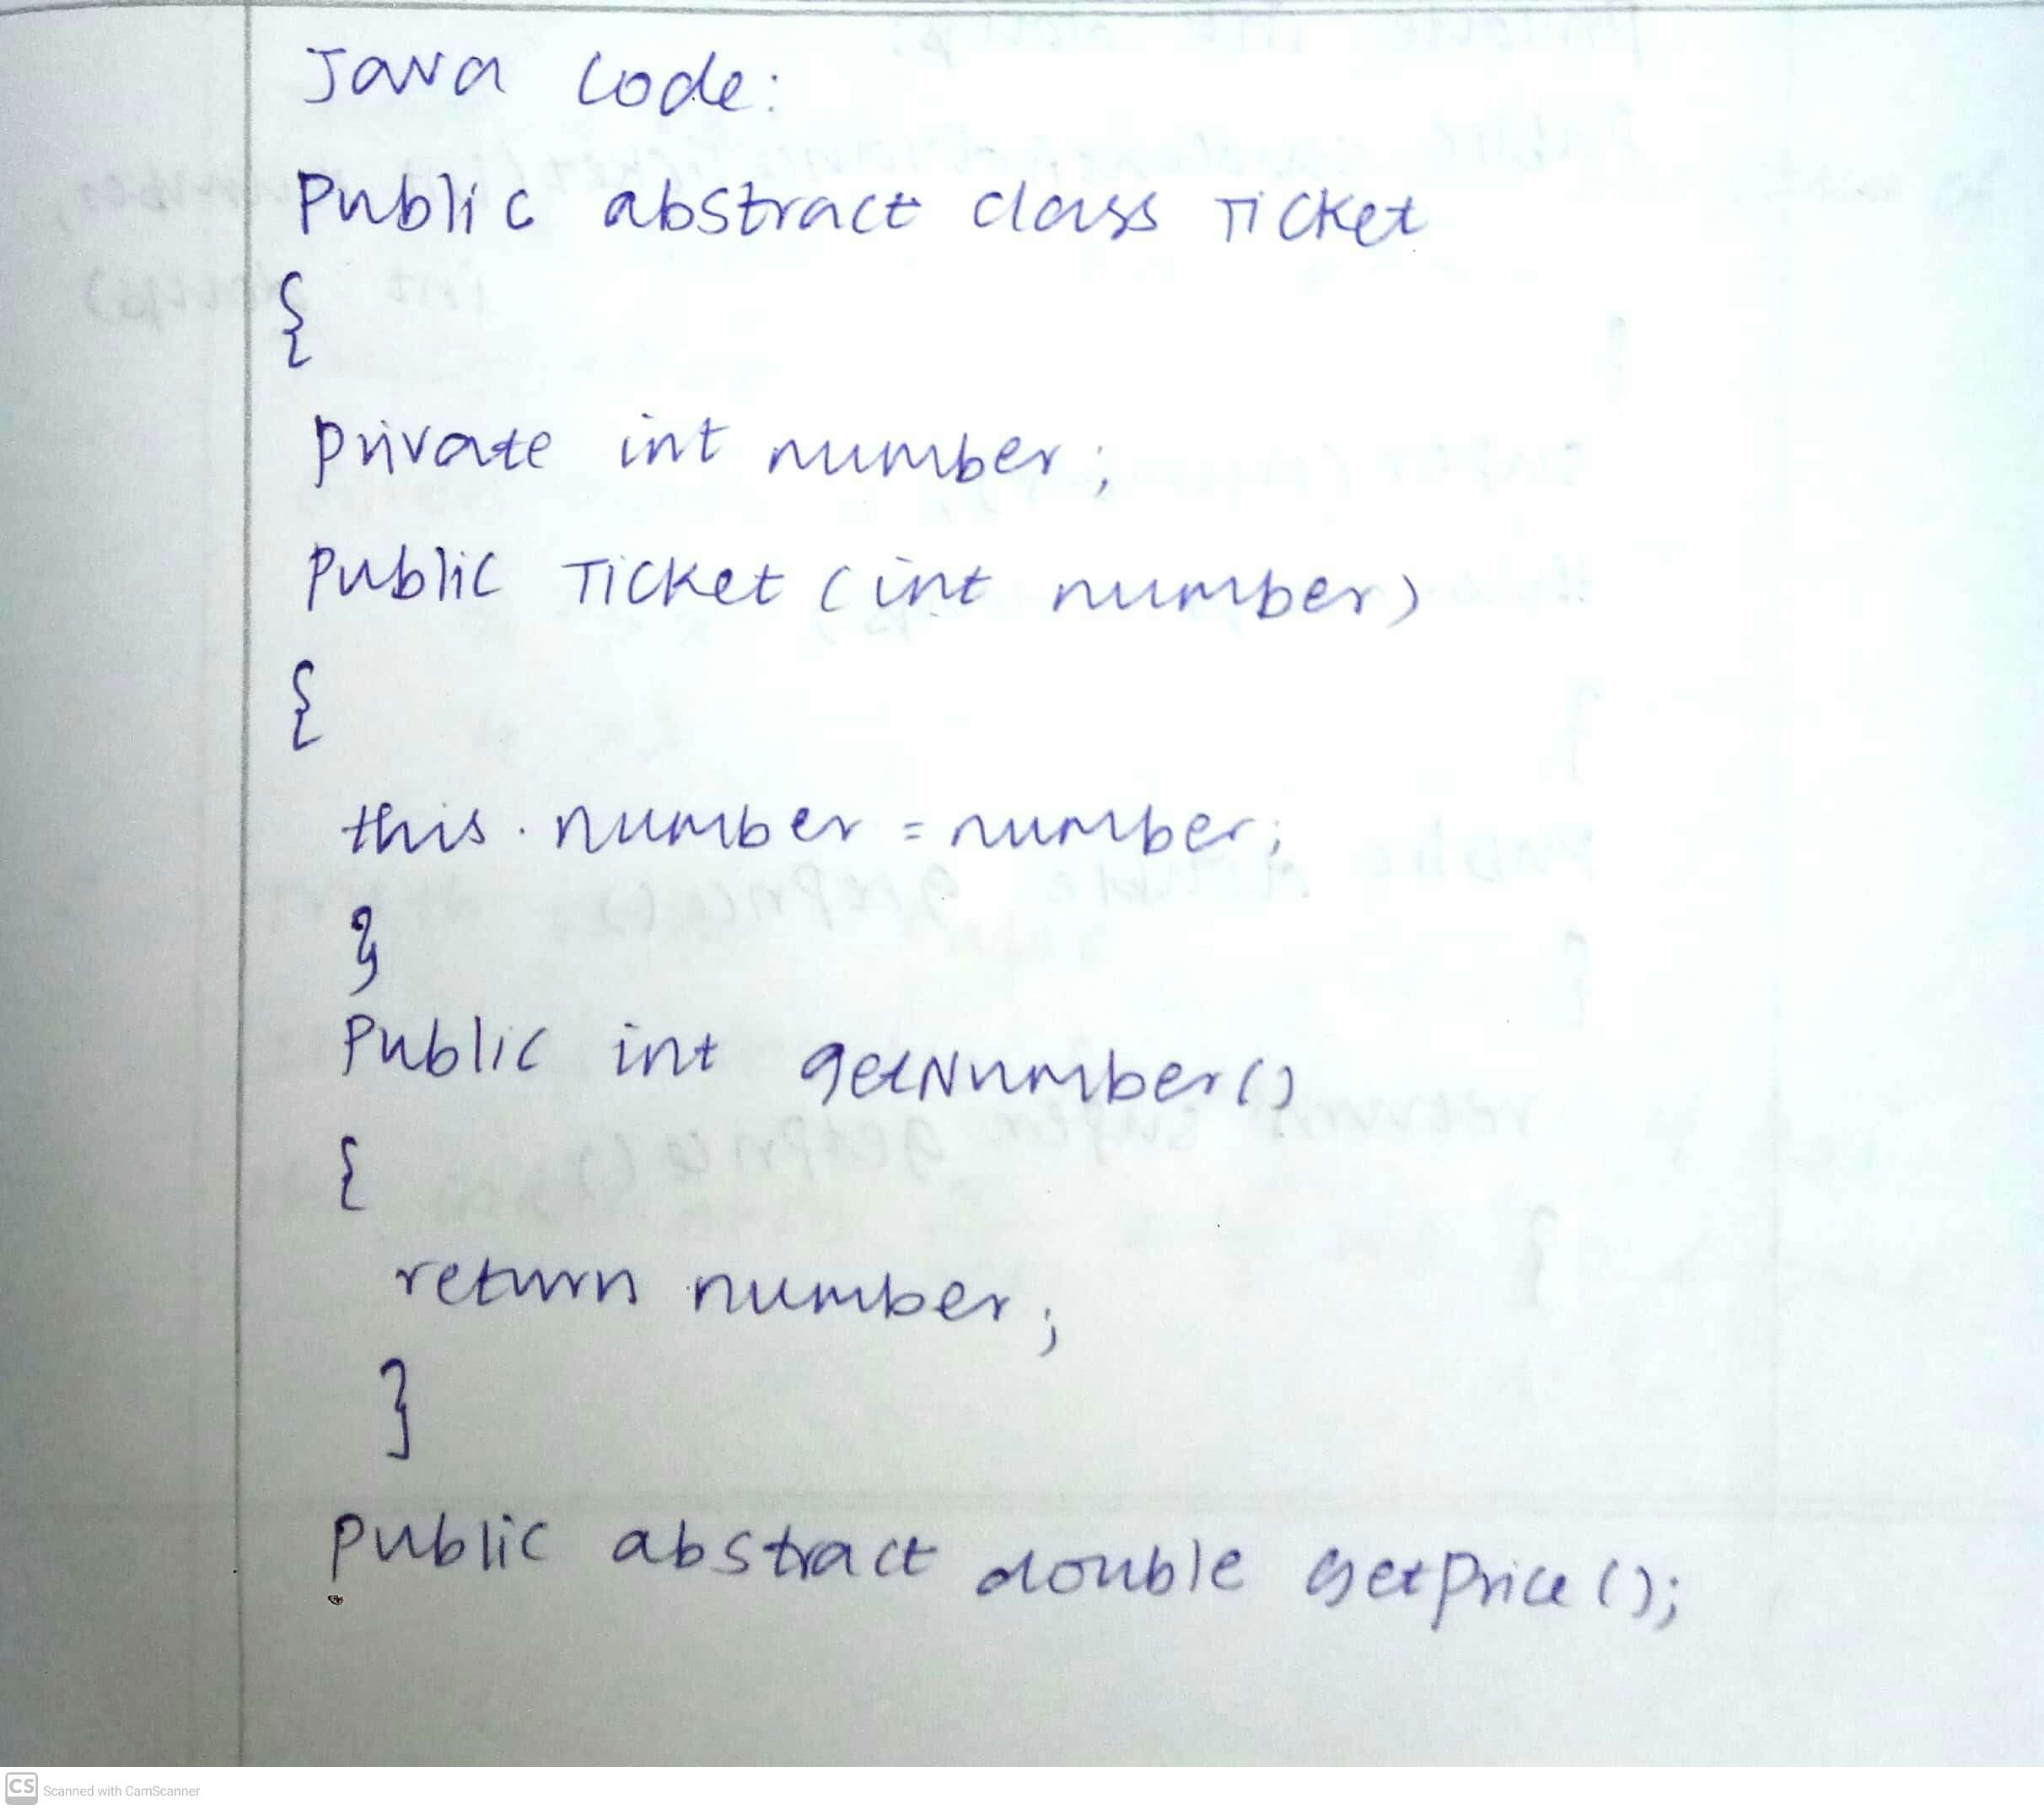 Java Code:
Public abstract class Ticket
{
private int number;
Public Ticket (int number)
{
this.number = number;
}
Public int getNumber()
{
return number;
}
public abstract double getPrice();
CS Scanned with CamScanner